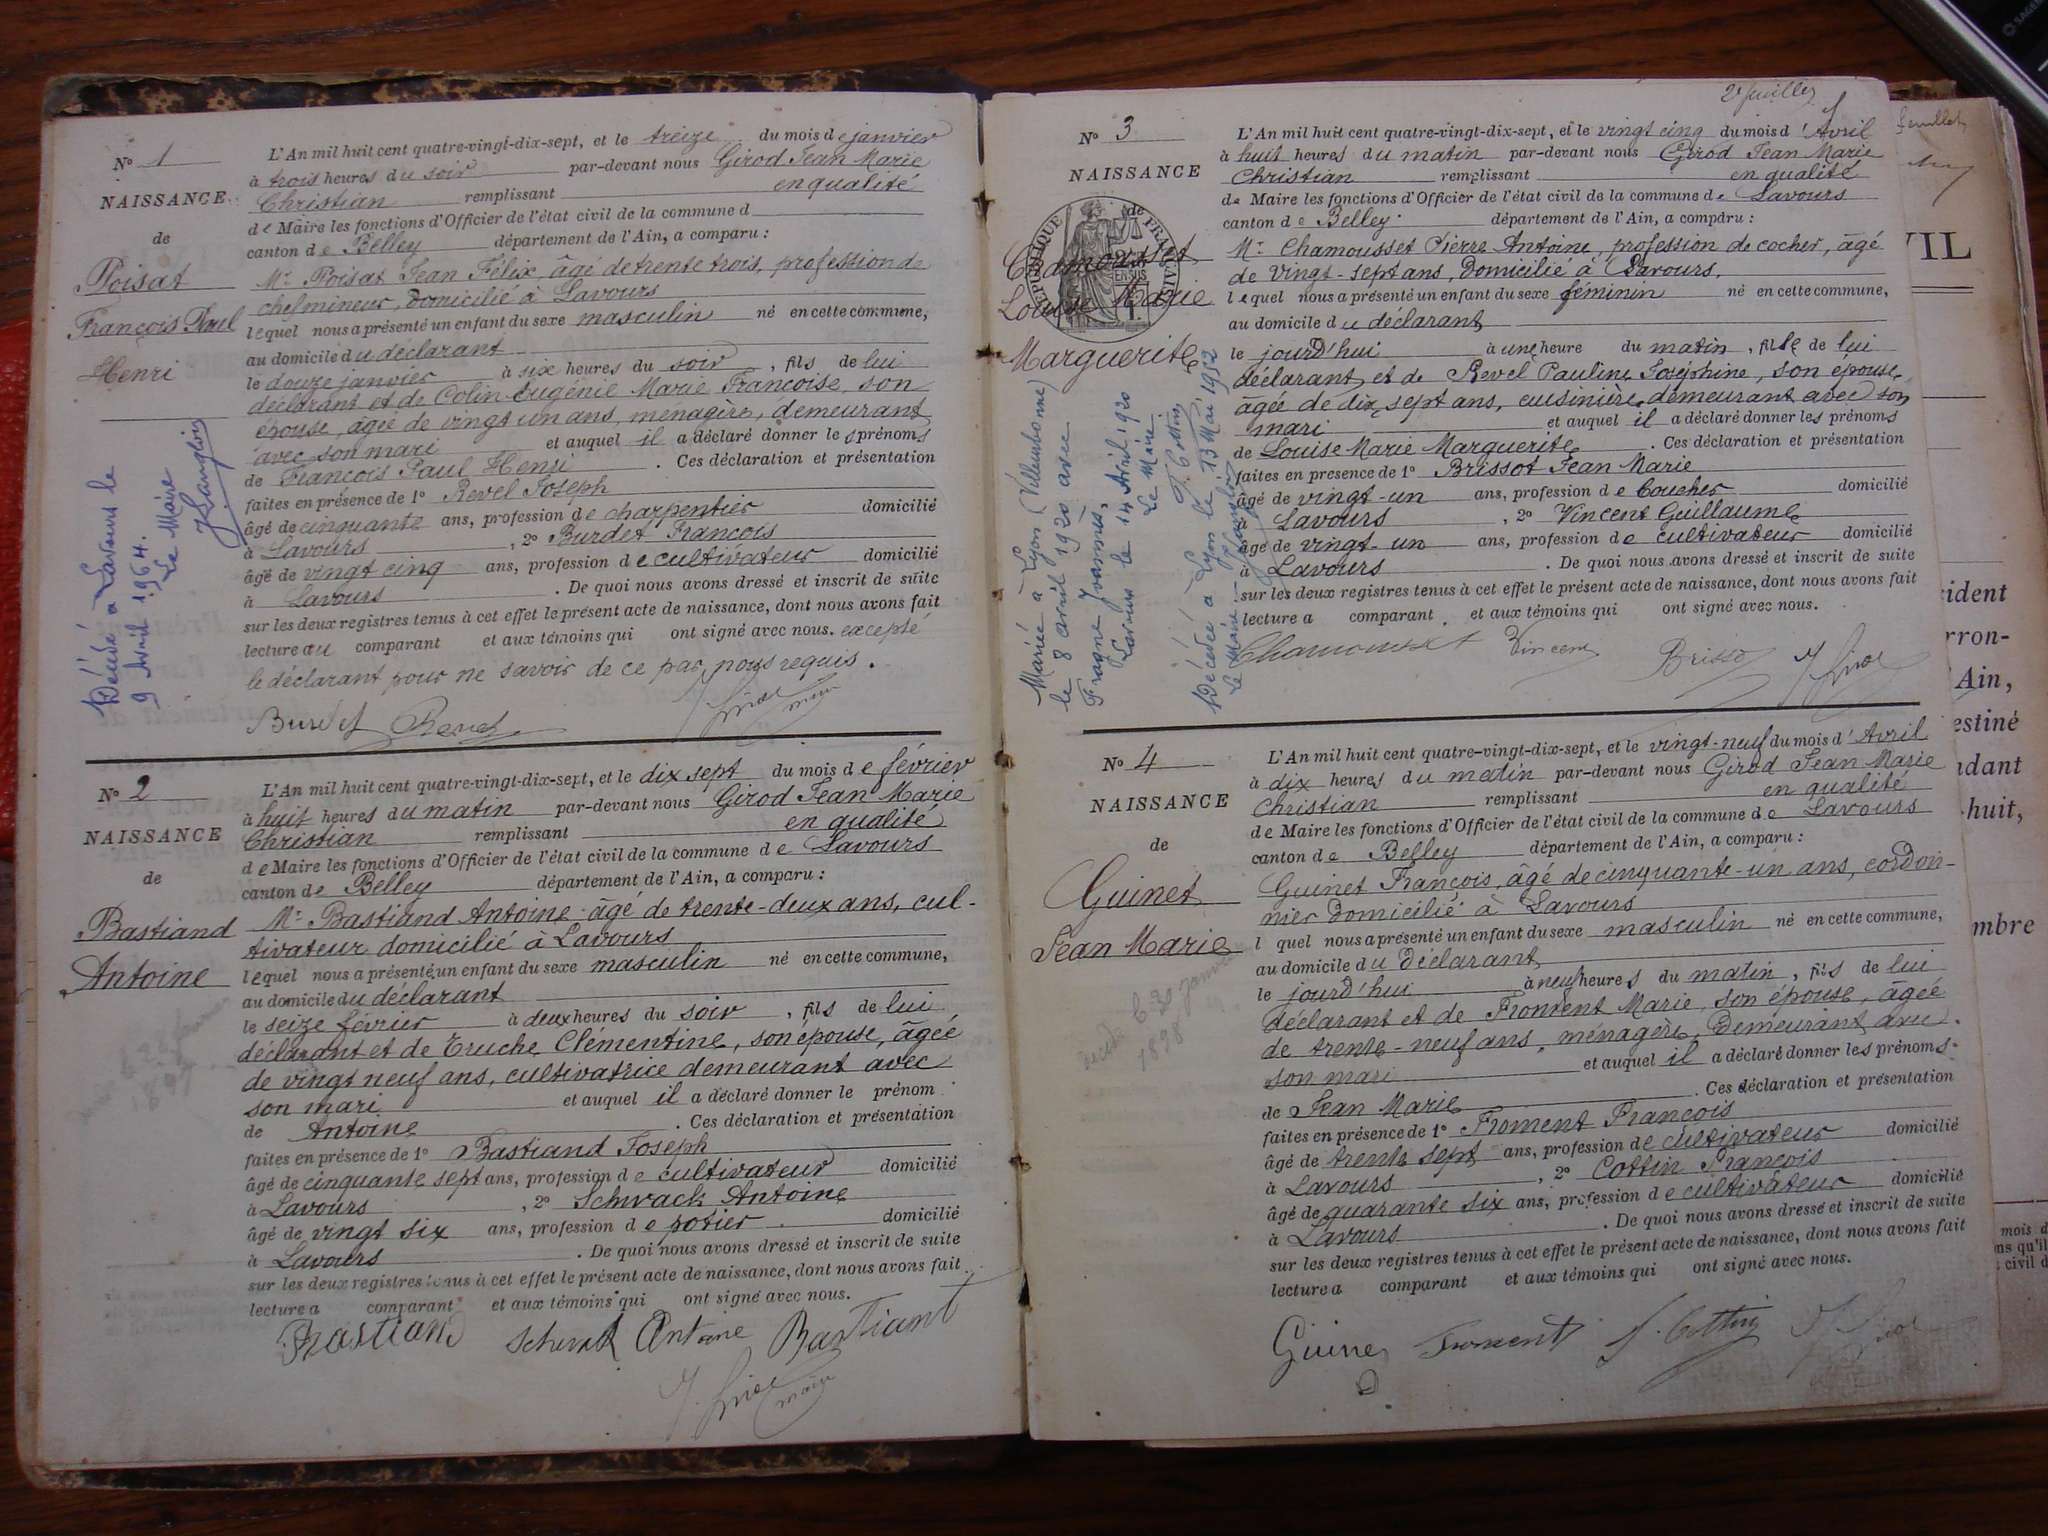 N° 1
NAISSANCE
de
Poisat
François Paul
Henri
Décédé à Lavours le
9 Avril 1964.
Le Maire
L'An mil huit cent quatre-vingt-dix-sept, et le treize du mois de janvier
à trois heures du soir par-devant nous Girod Jean Marie
Christian remplissant en qualité
de Maire les fonctions d'Officier de l'état civil de la commune d
canton de Belley département de l'Ain, a comparu :
Mr Poisat Jean Félix, âgé de trente trois, profession de
chef mineur, domicilié à Lavours
lequel nous a présenté un enfant du sexe masculin né en cette commune,
au domicile du déclarant
le douze janvier à six heures du soir, fils de lui
déclarant et de Colin Eugénie Marie Françoise, son
épouse, âgée de vingt un ans, ménagère, demeurant
avec son mari et auquel il a déclaré donner les prénoms
de François Paul Henri. Ces déclaration et présentation
faites en présence de 1° Revel Joseph
âgé de cinquante ans, profession de charpentier domicilié
à Lavours, 2° Burdet François
âgé de vingt cinq ans, profession de cultivateur domicilié
à Lavours. De quoi nous avons dressé et inscrit de suite
sur les deux registres tenus à cet effet le présent acte de naissance, dont nous avons fait
lecture au comparant et aux témoins qui ont signé avec nous. excepté
le déclarant pour ne savoir de ce par nous requis.
Burdet Revel J. Girod maire
N° 2
NAISSANCE
de
Bastiand
Antoine
1897
L'An mil huit cent quatre-vingt-dix-sept, et le dix sept du mois de février
à huit heures du matin par-devant nous Girod Jean Marie
Christian remplissant en qualité
de Maire les fonctions d'Officier de l'état civil de la commune de Lavours
canton de Belley département de l'Ain, a comparu :
Mr Bastiand Antoine âgé de trente-deux ans, cul-
tivateur domicilié à Lavours
lequel nous a présenté un enfant du sexe masculin né en cette commune,
au domicile du déclarant
le seize février à deux heures du soir, fils de lui
déclarant et de Truche Clémentine, son épouse, âgée
de vingt neuf ans, cultivatrice demeurant avec
son mari et auquel il a déclaré donner le prénom
de Antoine. Ces déclaration et présentation
faites en présence de 1° Bastiand Joseph
âgé de cinquante sept ans, profession de cultivateur domicilié
à Lavours, 2° Schwack Antoine
âgé de vingt six ans, profession de potier domicilié
à Lavours. De quoi nous avons dressé et inscrit de suite
sur les deux registres tenus à cet effet le présent acte de naissance, dont nous avons fait
lecture a comparant et aux témoins qui ont signé avec nous.
Bastiand Schwack Antoine Bastiant
J. Girod maire
2e feuillet
N° 3
NAISSANCE
de
RÉPUBLIQUE FRANÇAISE
Chamousset
Louise Marie
Marguerite
Mariée à Lyon (Villeurbanne)
le 8 avril 1920 avec
Lavours le 14 Avril 1920
Le Maire
F. Cottin
Décédée à Lyon le 13 Mai 1952
Le Maire
L'An mil huit cent quatre-vingt-dix-sept, et le vingt cinq du mois d'Avril
à huit heures du matin par-devant nous Girod Jean Marie
Christian remplissant en qualité
de Maire les fonctions d'Officier de l'état civil de la commune de Lavours
canton de Belley département de l'Ain, a comparu :
Mr Chamousset Pierre Antoine, profession de cocher, âgé
de vingt-sept ans, Domicilié à Lavours,
lequel nous a présenté un enfant du sexe féminin né en cette commune,
au domicile du déclarant
le jourd'hui à une heure du matin, fille de lui
déclarant et de Revel Pauline Joséphine, son épouse,
âgée de dix sept ans, cuisinière demeurant avec son
mari et auquel il a déclaré donner les prénoms
de Louise Marie Marguerite. Ces déclaration et présentation
faites en présence de 1° Brissot Jean Marie
âgé de vingt-un ans, profession de boucher domicilié
à Lavours, 2° Vincent Guillaume
âgé de vingt-un ans, profession de cultivateur domicilié
à Lavours. De quoi nous avons dressé et inscrit de suite
sur les deux registres tenus à cet effet le présent acte de naissance, dont nous avons fait
lecture a comparant et aux témoins qui ont signé avec nous.
Chamousset Vincent Brissot J. Girod
N° 4
NAISSANCE
de
Guinet
Jean Marie
décédé le 30 janvier
1898
L'An mil huit cent quatre-vingt-dix-sept, et le vingt-neuf du mois d'Avril
à dix heures du matin par-devant nous Girod Jean Marie
Christian remplissant en qualité
de Maire les fonctions d'Officier de l'état civil de la commune de Lavours
canton de Belley département de l'Ain, a comparu :
Guinet François, âgé de cinquante-un ans, cordon-
nier Domicilié à Lavours
l quel nous a présenté un enfant du sexe masculin né en cette commune,
au domicile du Déclarant
le jourd'hui à neuf heures du matin, fils de lui
déclarant et de Froment Marie, son épouse, âgée
de trente-neuf ans, ménagère, Demeurant avec
son mari et auquel il a déclaré donner les prénoms
de Jean Marie. Ces déclaration et présentation
faites en présence de 1° Froment François
âgé de trente sept ans, profession de cultivateur domicilié
à Lavours, 2° Cottin François
âgé de quarante six ans, profession de cultivateur domicilié
à Lavours. De quoi nous avons dressé et inscrit de suite
sur les deux registres tenus à cet effet le présent acte de naissance, dont nous avons fait
lecture a comparant et aux témoins qui ont signé avec nous.
Guinet Froment F. Cottin J. Girod
feuillet
VIL
ident
rron-
Ain,
estiné
ndant
-huit,
mbre
mois d
ns qu'il
civil d
SAGEM